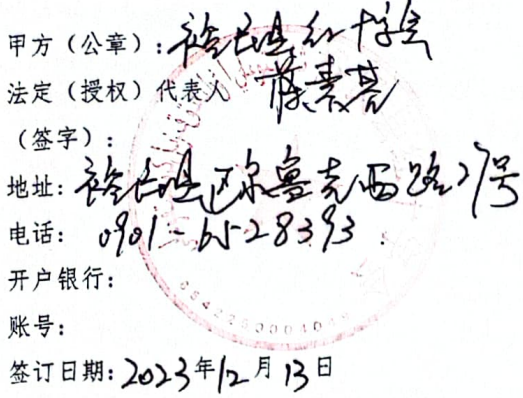 甲方（公章）：裕民县红十字会
法定（授权）代表人
（签字）：
地址：裕民县巴尔鲁克西路27号
电话：0901-6528393
开户银行：
账号：
签订日期：2023年12月13日